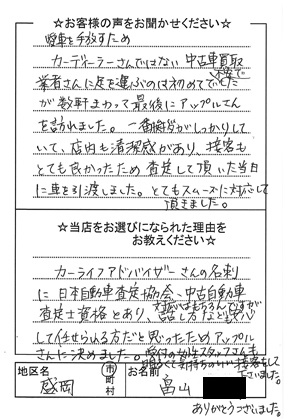 ☆お客様の声をお聞かせください☆
愛車を手放すため
カーディーラーさんではない中古車買取
業者さんに足を運ぶのは初めてで不安でした
が数軒まわって最後にアップルさん
を訪れました。一番将がしっかりして
いて、店内も清潔感があり、接客も
とても良かったため査定して頂いた当日
に車を引渡しました。とてもスムーズに対応して
頂きました。
☆当店をお選びになられた理由を
お教えください☆
カーライフアドバイザーさんの名刺
に日本自動車査定協会、中古自動車
査定士資格とあり、対応はもちろんですが
話し方など安心
して任せられる方だと思ったためアップル
さんに決めました。受付の女性スタッフさんも
明るくて気持ちのいい接客をして
下さいました。
地区名 盛岡 市町村 お名前 畠山
ありがとうございました。